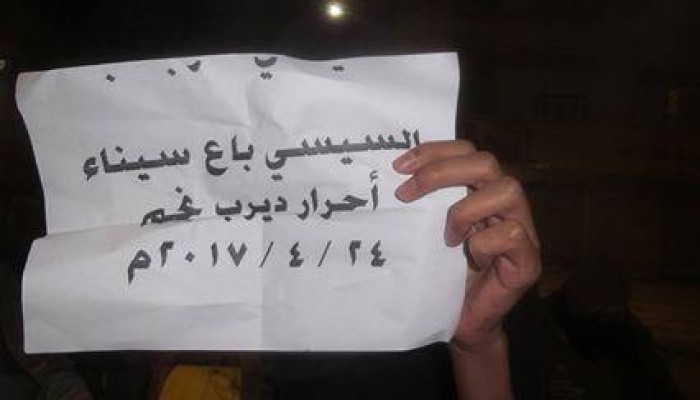 السيسي باع سيناء
أحرار ديرب نجم
٢٤ / ٤ / ٢٠١٧م